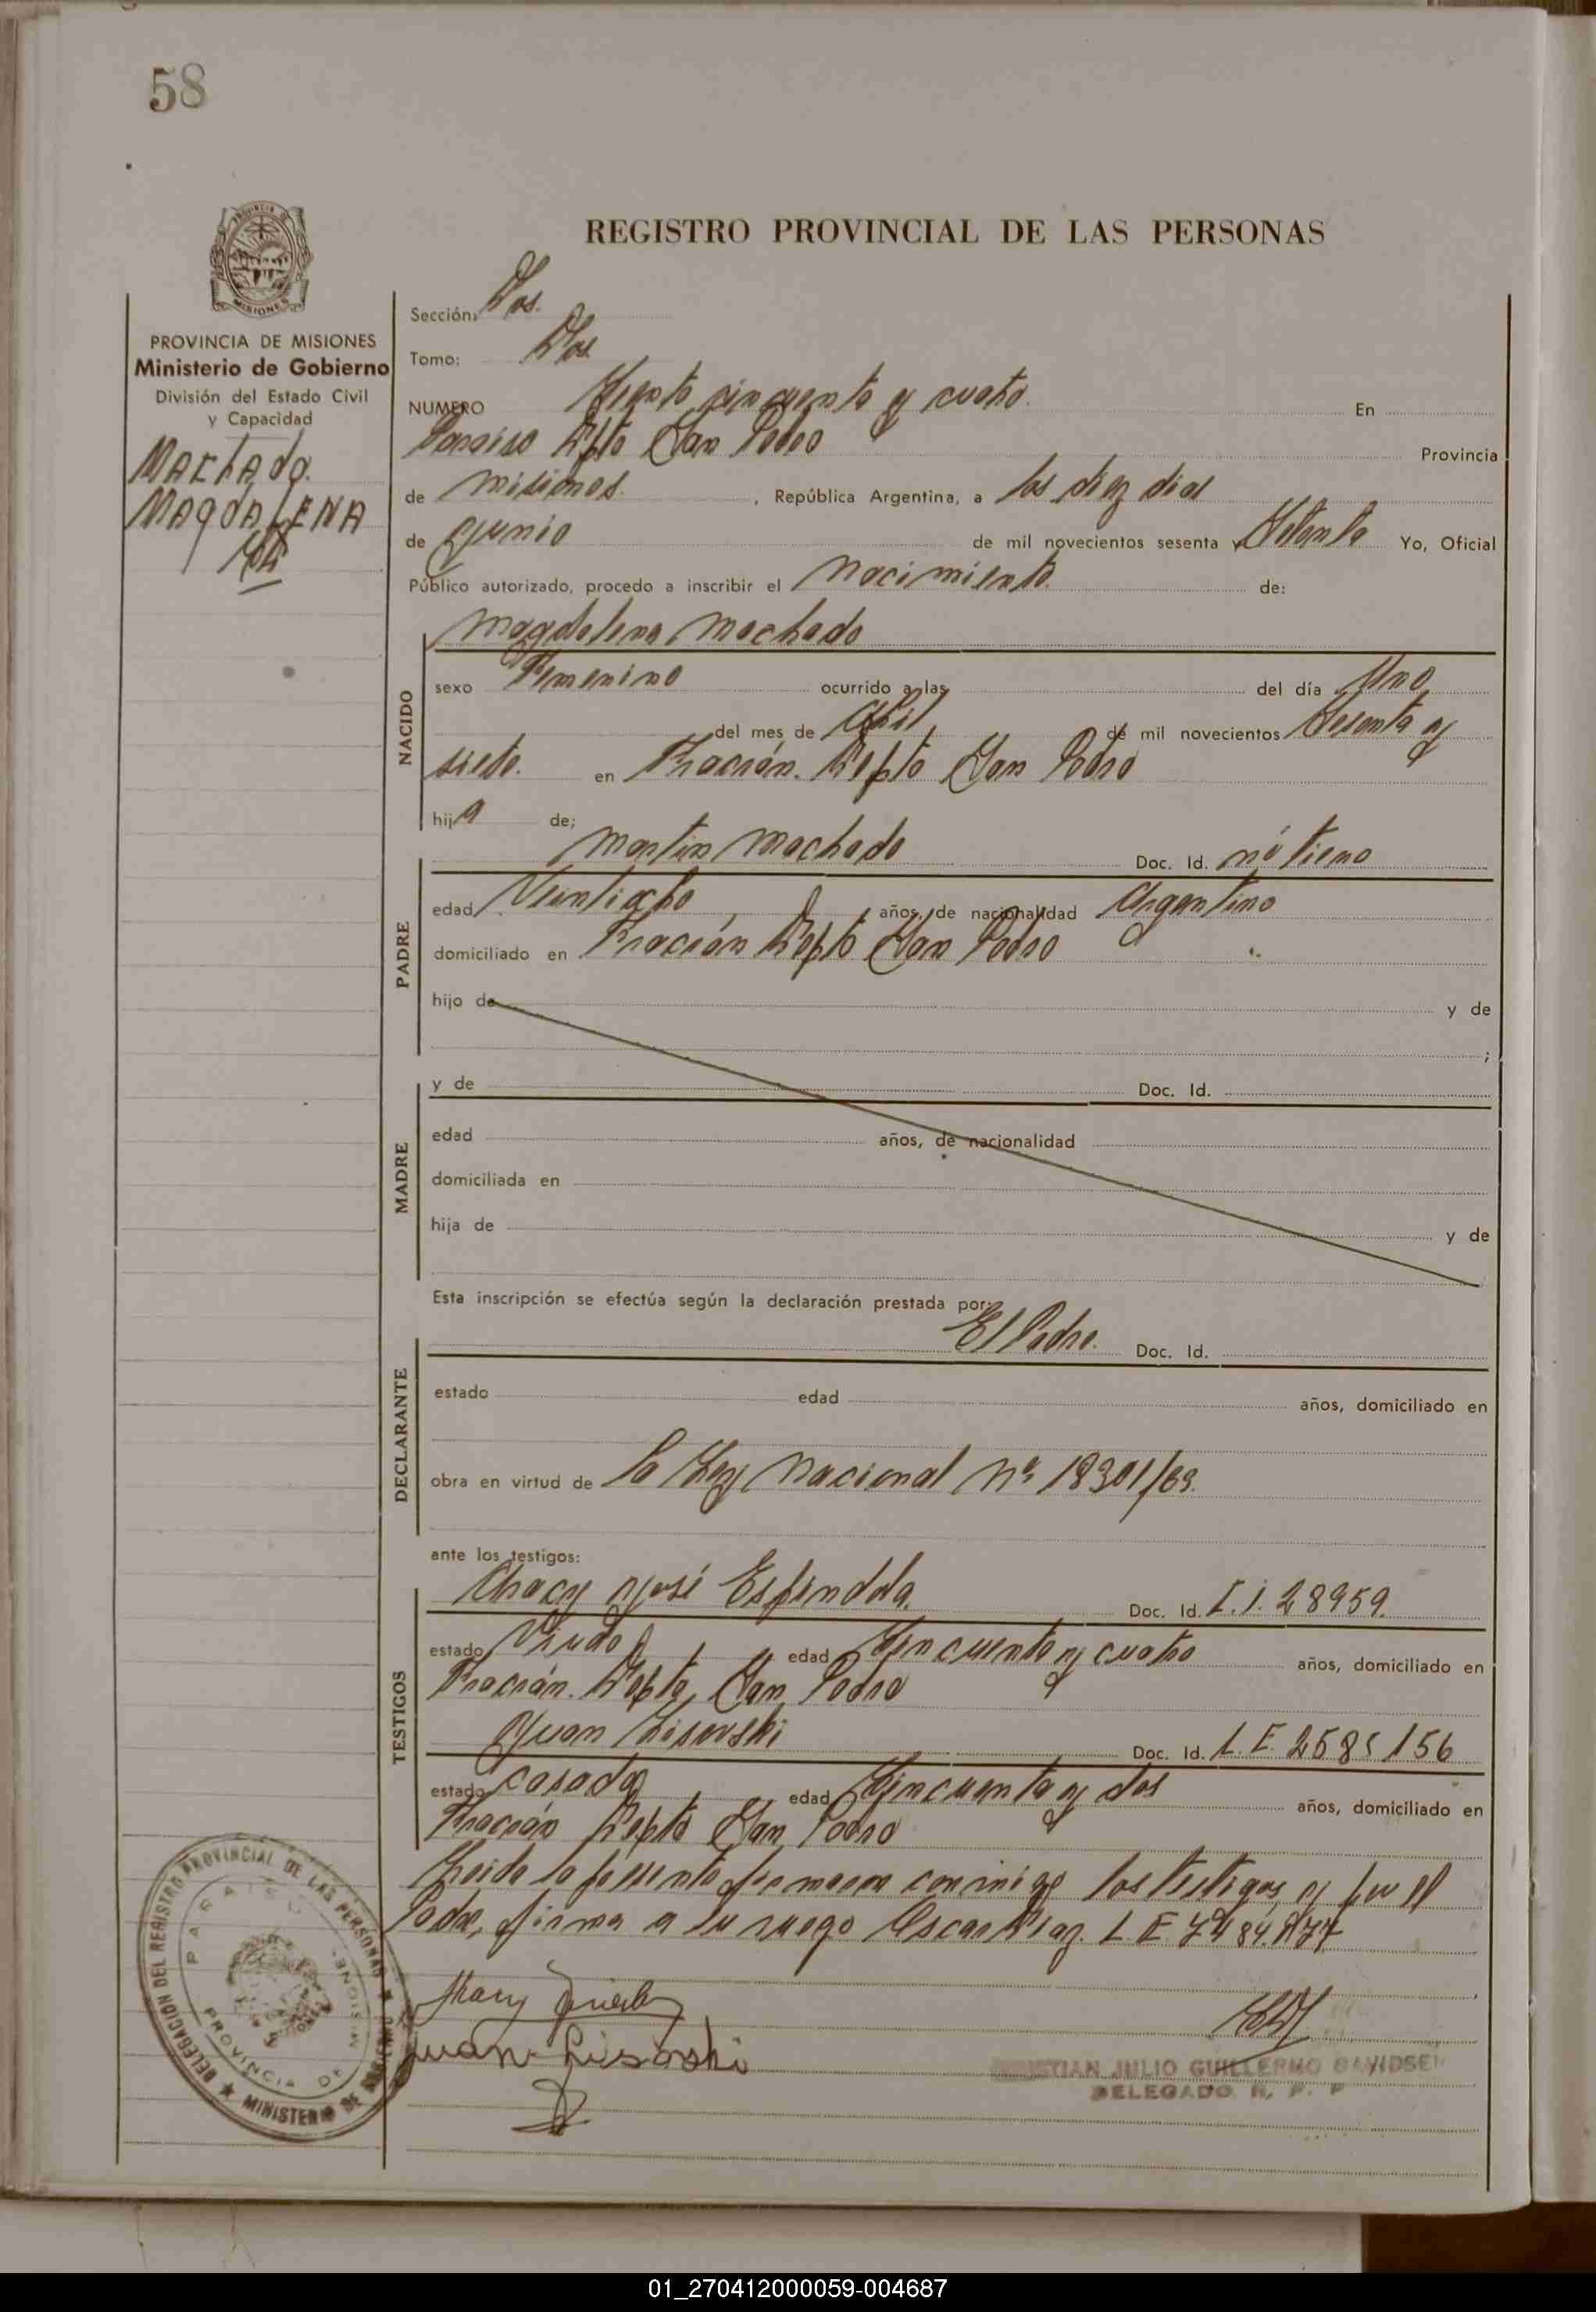 58
REGISTRO PROVINCIAL DE LAS PERSONAS
PROVINCIA DE MISIONES
Ministerio de Gobierno
División del Estado Civil
y Capacidad
Machado
Magdalena
Sección: Dos.
Tomo: Dos
NUMERO Ciento cincuenta y cuatro. En
Paraiso Dpto San Pedro Provincia
de misiones. , República Argentina, a los diez dias
de Junio de mil novecientos sesenta y Setenta Yo, Oficial
Público autorizado, procedo a inscribir el nacimiento. de:
NACIDO
Magdalena Machado
sexo Femenino ocurrido a las del día Uno
del mes de Abril de mil novecientos Sesenta y
siete. en Fracrán. Depto San Pedro
hija de;
PADRE
Martin Machado Doc. Id. no tiene
edad Veintiocho años, de nacionalidad Argentino
domiciliado en Fracrán Depto San Pedro
hijo de y de
;
MADRE
y de Doc. Id.
edad años, de nacionalidad
domiciliada en
hija de y de
Esta inscripción se efectúa según la declaración prestada por:
DECLARANTE
El Padre. Doc. Id.
estado edad años, domiciliado en
obra en virtud de la Ley Nacional Nº 18301/69.
ante los testigos:
TESTIGOS
José Espindola. Doc. Id. C.I. 28959.
estado Viudo edad Cincuenta y cuatro años, domiciliado en
Fracrán. Depto San Pedro
Juan Lisovski Doc. Id. L.E. 2585156
estado casado edad Cincuenta y dos años, domiciliado en
Fracrán Depto San Pedro
Leida la presente firmaron conmigo los testigos, y por el
Padre, firma a su ruego Oscar Diaz. L.E.
Juan Lisoski
JULIO GUILLERMO DAVIDSEN
DELEGADO R. P. P
DELEGACION DEL REGISTRO PROVINCIAL DE LAS PERSONAS ★ MINISTERIO DE GOBIERNO ★
PARAISO
PROVINCIA DE MISIONES
01_270412000059-004687